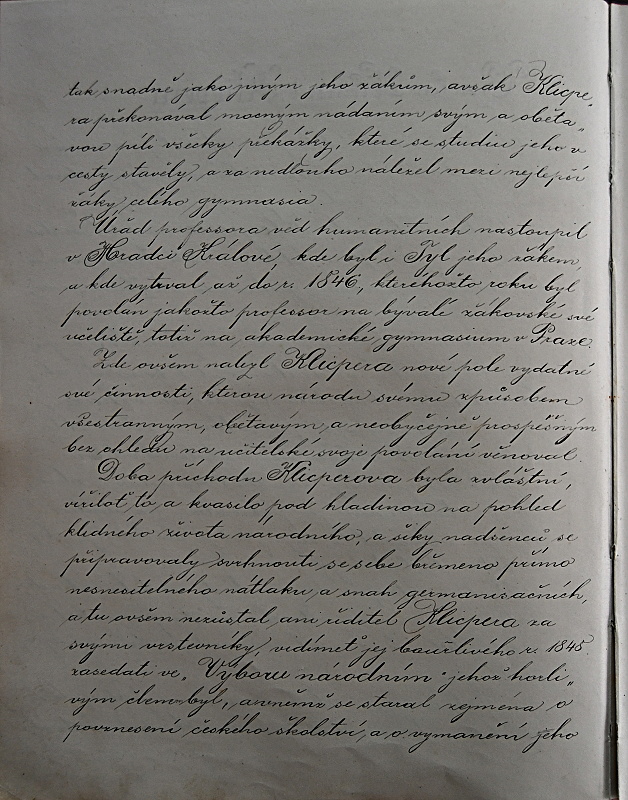 tak snadně jako jiným jeho žákům, avšak Klicpe„
ra překonával mocným nádaním svým a oběta„
vou pílí všecky překážky, které se studiu jeho v
cesty stavěly, a za nedlouho náležel mezi nejlepší
žáky celého gymnasia.
Úřad professora věd humanitních nastoupil
v Hradci Králové, kde byl i Tyl jeho žákem,
a kde vytrval až do r. 1846., kteréhožto roku byl
povolán jakožto professor na bývalé žákovské své
učeliště, totiž na akademické gymnasium v Praze.
Zde ovšem nalezl Klicpera nové pole vydatné
své činnosti, kterou národu svému způsobem
všestranným, obětavým a neobyčejně prospěšným
bez ohledu na učitelské svoje povolání věnoval.
Doba příchodu Klicperova byla zvláštní,
vířiloť to a kvasilo pod hladinou na pohled
klidného života národního, a šiky nadšenců se
připravovaly svrhnouti se sebe břemeno přímo
nesnesitelného nátlaku a snah germanisačních,
a tu ovšem nezůstal ani ředitel Klicpera za
svými vrstevníky, vidímeť jej bouřlivého r. 1848.
zasedati ve „Výboru národním" jehož horli„
vým členem byl, a v němž se staral zejména o
povznesení českého školství, a o vymanění jeho